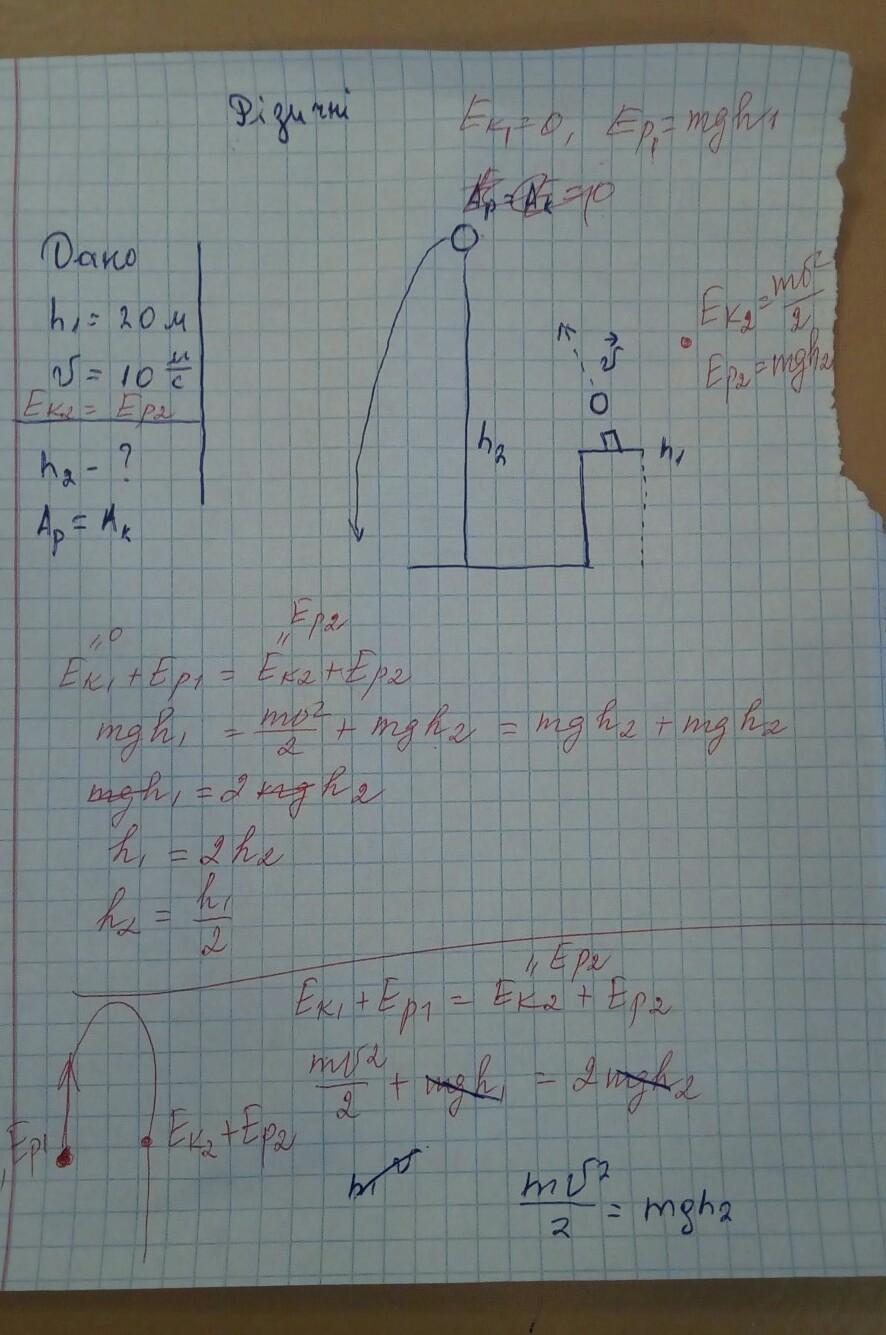 Фізичні
E_{K_1} = 0, E_{P_1} = mgh_1
A_p = A_к = 0
Дано
h_1 = 20 м
v = 10 м/с
E_{K2} = E_{P2}
h_2 - ?
A_p = A_к
E_{K2} = mv²/2
E_{P2} = mgh_2
v⃗
h_2
h_1
"0
"E_{P2}
E_{K_1} + E_{P_1} = E_{K2} + E_{P2}
mgh_1 = mv²/2 + mgh_2 = mgh_2 + mgh_2
mgh_1 = 2mgh_2
h_1 = 2h_2
h_2 = h_1/2
"E_{P2}
E_{K_1} + E_{P1} = E_{K2} + E_{P2}
mv²/2 + mgh_1 = 2mgh_2
, E_{P1}
E_{K2} + E_{P2}
mv²/2 = mgh_2